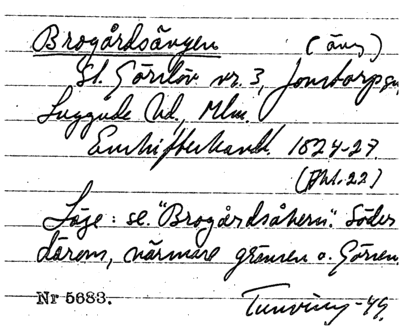 Brogårdsängen (äng)
St. Görslöv nr. 3, Jonstorps sn,
Luggude hd., Mlm.
Enskifteskand. 1824-27
(Akt. 22)
Läge: se. "Brogårdsåkern". Söder
därom, närmare gränsen o. Görsn
Nr 5683. Tunving-49.